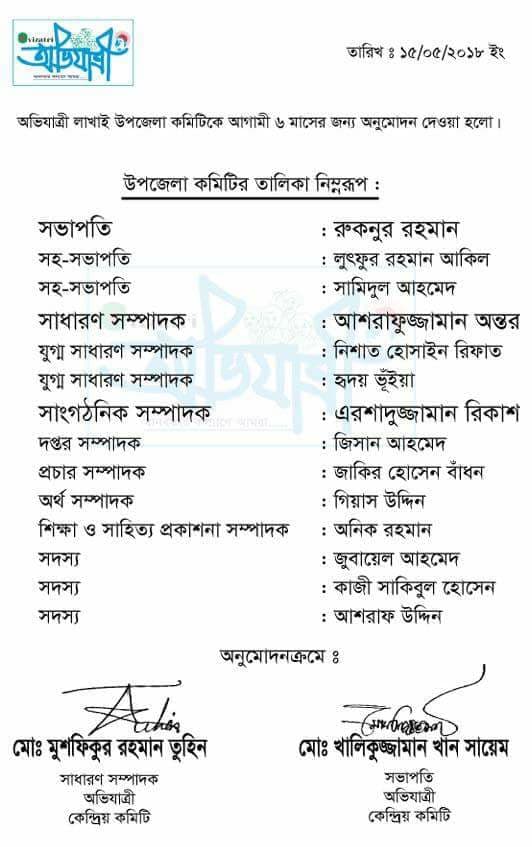 avizatri
অভিযাত্রী
তারিখ ঃ ১৫/০৫/২০১৮ ইং
অভিযাত্রী লাখাই উপজেলা কমিটিকে আগামী ৬ মাসের জন্য অনুমোদন দেওয়া হলো।
উপজেলা কমিটির তালিকা নিম্নরূপ :
সভাপতি : রুকনুর রহমান
সহ-সভাপতি : লুৎফুর রহমান আকিল
সহ-সভাপতি : সামিদুল আহমেদ
সাধারণ সম্পাদক : আশরাফুজ্জামান অন্তর
যুগ্ম সাধারণ সম্পাদক : নিশাত হোসাইন রিফাত
যুগ্ম সাধারণ সম্পাদক : হৃদয় ভূঁইয়া
সাংগঠনিক সম্পাদক : এরশাদুজ্জামান রিকাশ
দপ্তর সম্পাদক : জিসান আহমেদ
প্রচার সম্পাদক : জাকির হোসেন বাঁধন
অর্থ সম্পাদক : গিয়াস উদ্দিন
শিক্ষা ও সাহিত্য প্রকাশনা সম্পাদক : অনিক রহমান
সদস্য : জুবায়েল আহমেদ
সদস্য : কাজী সাকিবুল হোসেন
সদস্য : আশরাফ উদ্দিন
অনুমোদনক্রমে ঃ
মোঃ মুশফিকুর রহমান তুহিন
সাধারণ সম্পাদক
অভিযাত্রী
কেন্দ্রিয় কমিটি
মোঃ খালিকুজ্জামান খান সায়েম
সভাপতি
অভিযাত্রী
কেন্দ্রিয় কমিটি